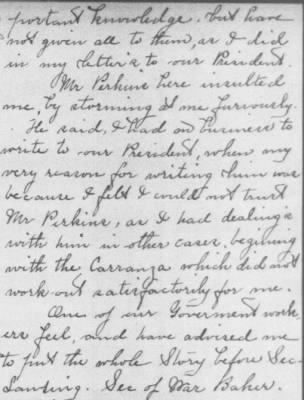 portant knowledge. but have
not given all to them, as I did
in my letters to our President.
Mr Perkins here insulted
me, by storming at me furiously.
He said, I had no business to
write to our President, when my
very reason for writing him was
because I felt I could not trust
Mr Perkins, as I had dealings
with him in other cases, begining
with the Carranza which did not
work out satisfactorly for me.
One of our Goverment work
ers feel, and have advised me
to put the whole Story before Sec-
Lansing. Sec of War Baker.